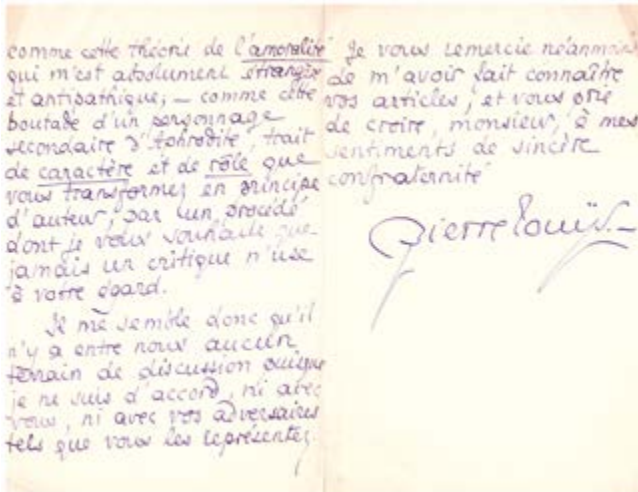 comme cette théorie de l'amoralité
qui m'est absolument étrangère
et antipathique; — comme cette
boutade d'un personnage
secondaire d'Aphrodite, trait
de caractère et de rôle que
vous transformez en principe
d'auteur, par un procédé
dont je vous souhaite que
jamais un critique n'use
à votre égard.
Il me semble donc qu'il
n'y a entre nous aucun
terrain de discussion puisque
je ne suis d'accord, ni avec
vous, ni avec vos adversaires
tels que vous les représentez.
Je vous remercie néanmoins
de m'avoir fait connaître
vos articles, et vous prie
de croire, monsieur, à mes
sentiments de sincère
confraternité
Pierre Louÿs. —